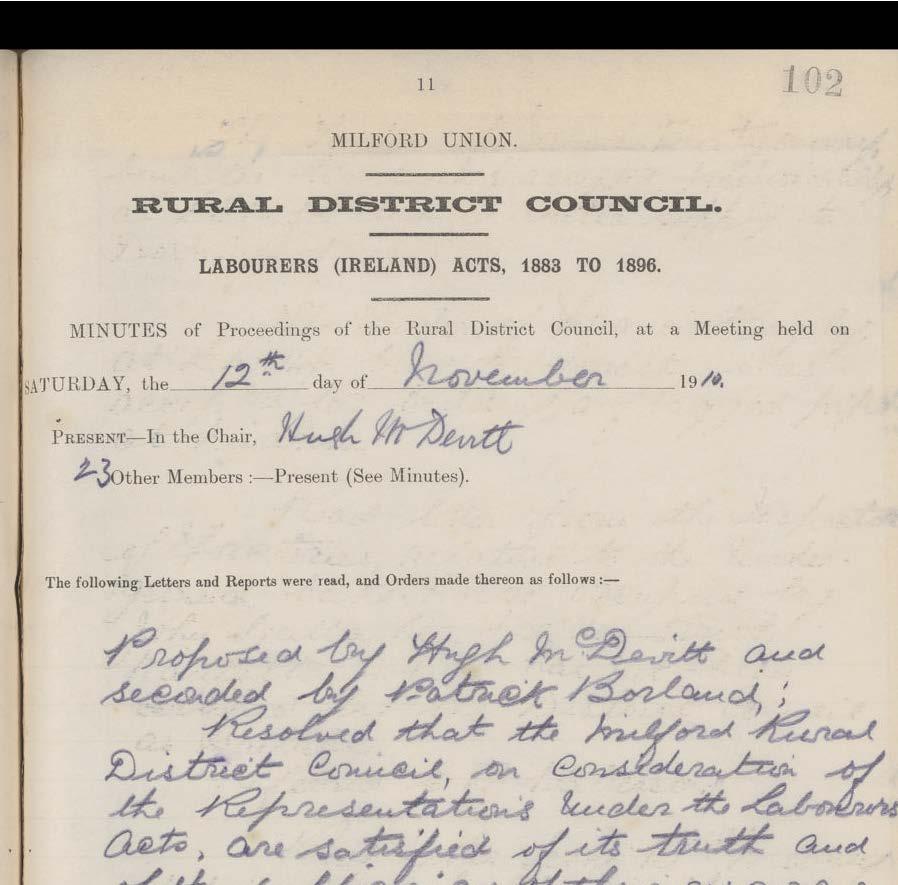 11
102
MILFORD UNION.
RURAL DISTRICT COUNCIL.
LABOURERS (IRELAND) ACTS, 1883 TO 1896.
MINUTES of Proceedings of the Rural District Council, at a Meeting held on
SATURDAY, the 12th day of November 1910.
PRESENT—In the Chair, Hugh McDevitt
23 Other Members :—Present (See Minutes).
The following Letters and Reports were read, and Orders made thereon as follows :—
Proposed by Hugh McDevitt and
seconded by Patrick Borland;
Resolved that the Milford Rural
District Council, on consideration of
the Representations under the Labourers
Acts, are satisfied of its truth and